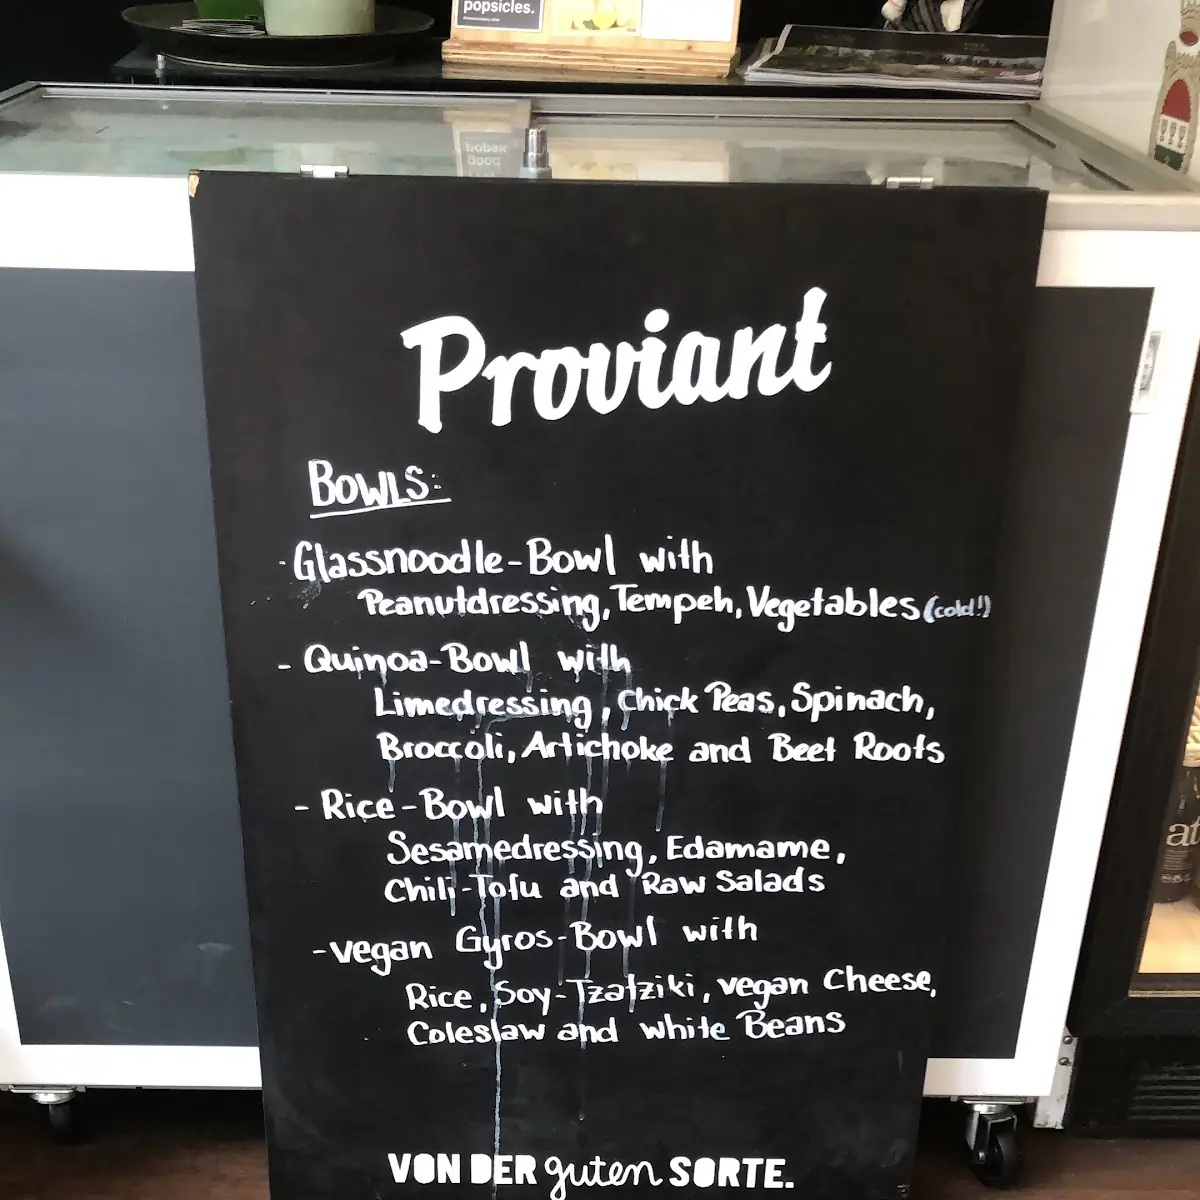 popsicles.
Proviant
BOWLS:
- Glassnoodle-Bowl with
Peanutdressing, Tempeh, Vegetables (cold!)
- Quinoa-Bowl with
Limedressing, Chick Peas, Spinach,
Broccoli, Artichoke and Beet Roots
- Rice-Bowl with
Sesamedressing, Edamame,
Chili-Tofu and Raw Salads
- vegan Gyros-Bowl with
Rice, Soy-Tzatziki, vegan Cheese,
Coleslaw and white Beans
VON DER guten SORTE.
at